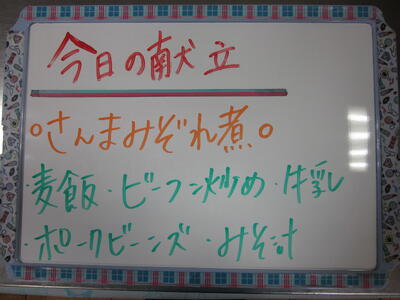 今日の献立
○さんまみぞれ煮○
・麦飯・ビーフン炒め・牛乳
・ポークビーンズ・みそ汁